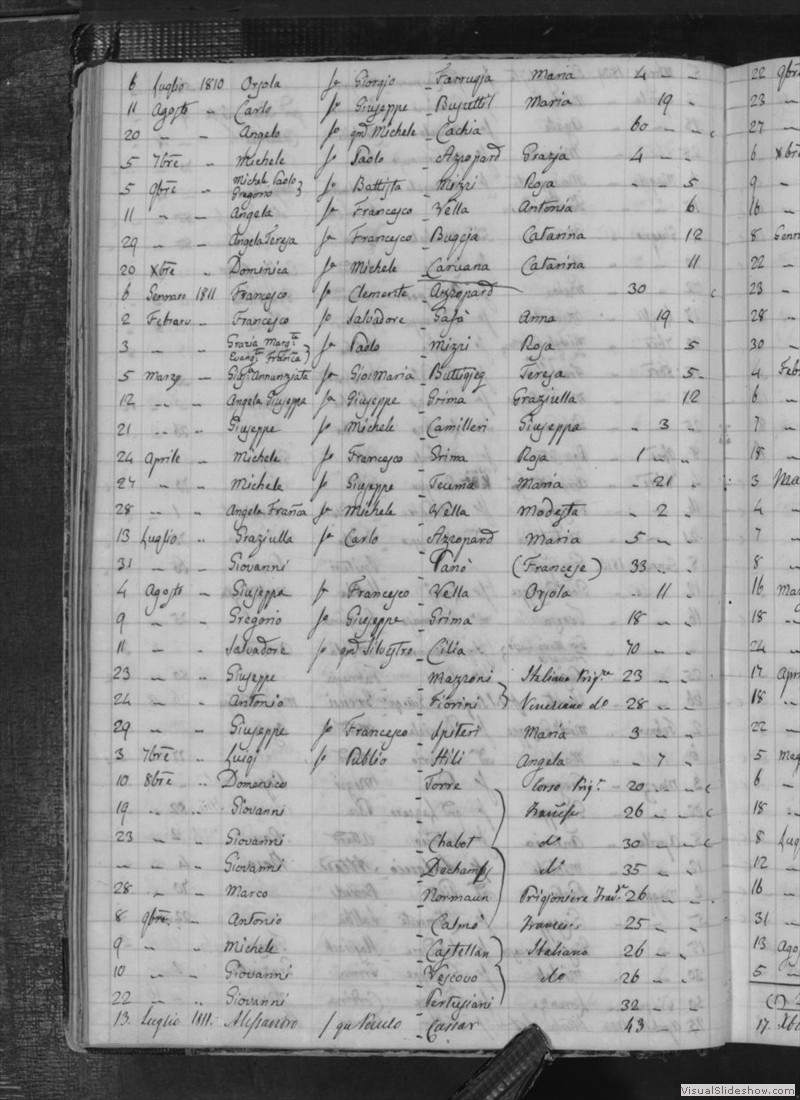 6 Luglio 1810 Orsola fa Giorgio Farrugia Maria 4 " "
11 Agosto " Carlo fo Giuseppe Busuttil Maria 19 "
20 " " Angelo fo qm Michele Cachia 60 " "
5 7bre " Michele fo Paolo Azzopard Grazia 4 " "
5 9bre " Michele Paolo Gregorio } fo Battista Mizzi Rosa " " 5
11 " " Angela fa Francesco Vella Antonia 6
29 " " Angela Teresa fa Francesco Bugeja Catarina 12
20 Xbre " Dominica fa Michele Caruana Catarina 11
6 Gennaro 1811 Francesco fo Clemente Azzopard 30
2 Febraro " Francesco fo Salvadore Gafà Anna 19 "
3 " " Grazia Marga Evangta Franca } fa Paolo Mizzi Rosa 5
5 Marzo " Annunziata fa Gio: Maria Buttigieg Teresa 5
12 " " Angela Giuseppa fa Giuseppe Grima Graziulla 12
21 " " Giuseppe fo Michele Camilleri Giuseppa " 3 "
24 Aprile " Michele fo Francesco Grima Rosa 1 " "
27 " Michele fo Giuseppe Teuma Maria " 21 "
28 " " Angela Franca fa Michele Vella Modesta " 2 "
13 Luglio " Graziulla fa Carlo Azzopard Maria 5 " "
31 " " Giovanni Panò (Francese) 33 " "
4 Agosto " Giuseppa fa Francesco Vella Orsola " 11 "
9 " " Gregorio fo Giuseppe Grima 18 " "
11 " Salvadore fo qm Silvestro Cilia 70 " "
23 " Giuseppe Mazzoni Italiano Prigre 23 " "
24 " Antonio Fiorini } Veneziano do 28 " "
29 " " Giuseppe fo Francesco Spiteri Maria 3 " "
3 7bre " Luigi fo Publio Hili Angela " 7 "
10 8bre " Domenico Torre Corso Prigr 20 " "
19 " " Giovanni Francese 26 " "
23 " " Giovanni Chabot do 30 " "
" " Giovanni Dechamps do 35 " "
28 " Marco Normaun Prigioniere 26 " "
8 9bre " Antonio Calmò Francese 25 " "
9 " " Michele Castellan } Italiano 26 " "
10 " " Giovanni Vescovo do 26 " "
22 " " Giovanni Pertusiani 32 " "
13 Luglio 1811 Alessandro Cassar 43 " "
22 9bre
23 "
27 "
6 Xbre
9 "
16 "
8 Genn
22 "
23 "
28 "
30 "
4 Feb
6 "
7 "
18 "
3 Ma
4 "
7 "
8 "
16 Mag
18 "
24 "
17 Apri
18 "
22 "
5 Mag
6 "
18 "
8 Lug
12 "
16 "
31 "
13 Ago
5 "
17 Xb
VisualSlideshow.com